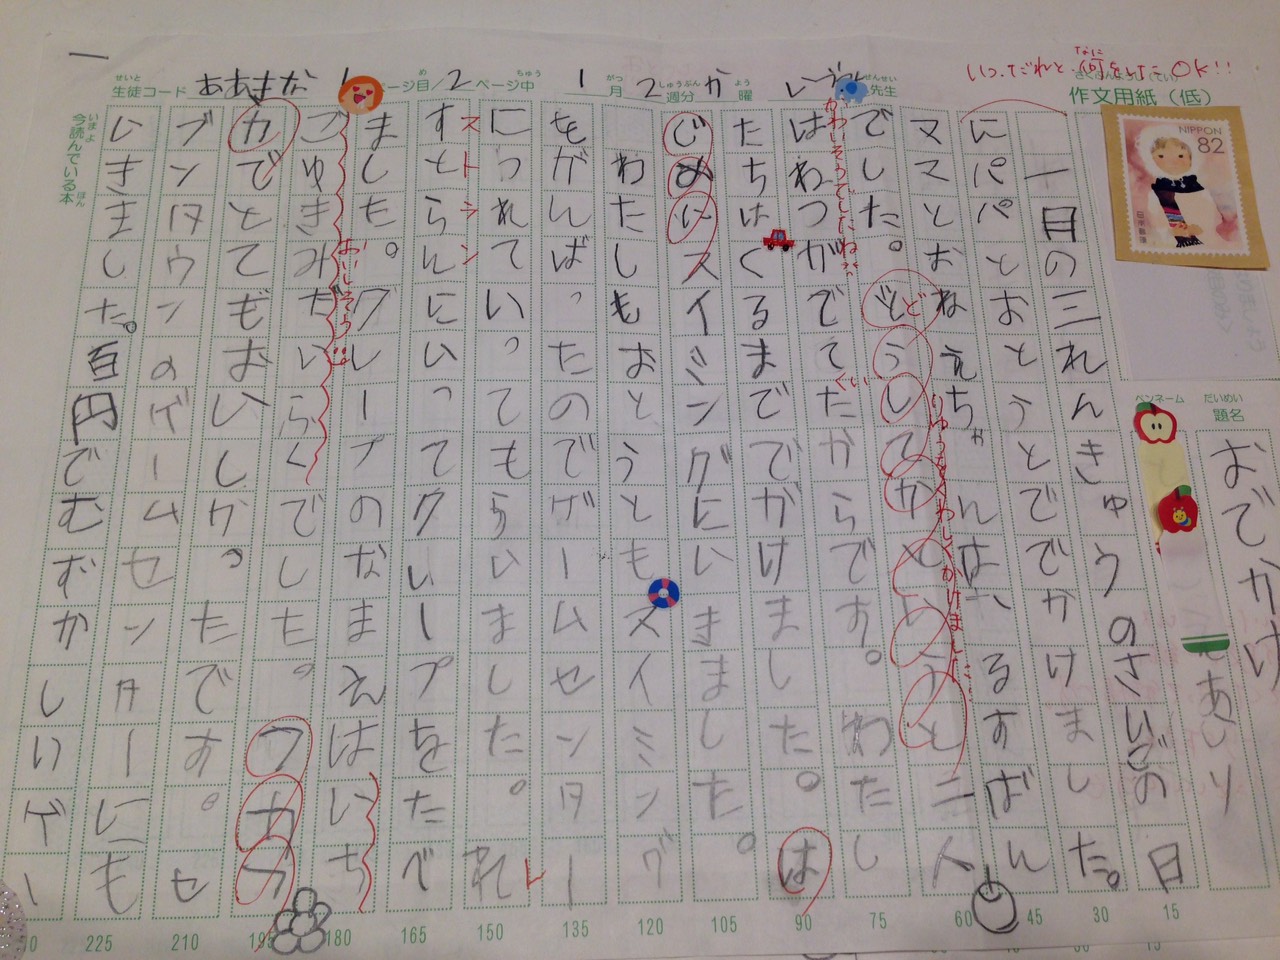 一
せいと
生徒コード ああまな 1ページ目/2ページ中 1月 2週分 か曜 先生
いつ、だれと、何をした OK!!
なに
作文用紙（低）
NIPPON
82
日本郵便
だいめい
題名
ペンネーム
おでかけ
あいり
一目の三れんきゅうのさいごの日
にパパとおとうとででかけました。
ママとおねえちゃんはおるすばん
でした。どうしてかというと二人
ど
はねつがでてたからです。わたし
かわいそうでしたねぇ
たちはくるまででがけました。は
じめにスイミングにいきました。
わたしもおとうともスイミング
をがんばったのでゲームセンター
につれていってもらいました。れ
レ
すとらんにいってクレープをたべ
ストラン
ました。グレープのなまえはいち
ごゆきみだいらくでした。フカフ
おいしそう
カでとてもおいしかったです。セ
ブンタウンのゲームセンターにも
いきました。百円でむずかしいゲー
いまよ ほん
今読んでいる本
15
30
45
60
75
90
105
120
135
150
165
180
195
210
225